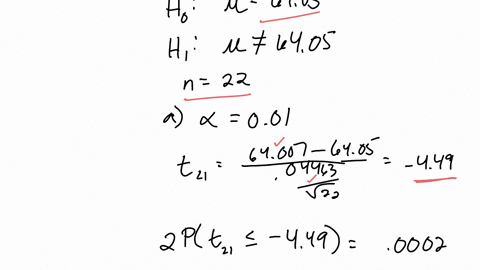 H₀: μ = 64.05
H₁: μ ≠ 64.05
n = 22
a) α = 0.01
t₂₁ = (64.007 − 64.05) / (.04463 / √22) = −4.49
2P(t₂₁ ≤ −4.49) = .0002